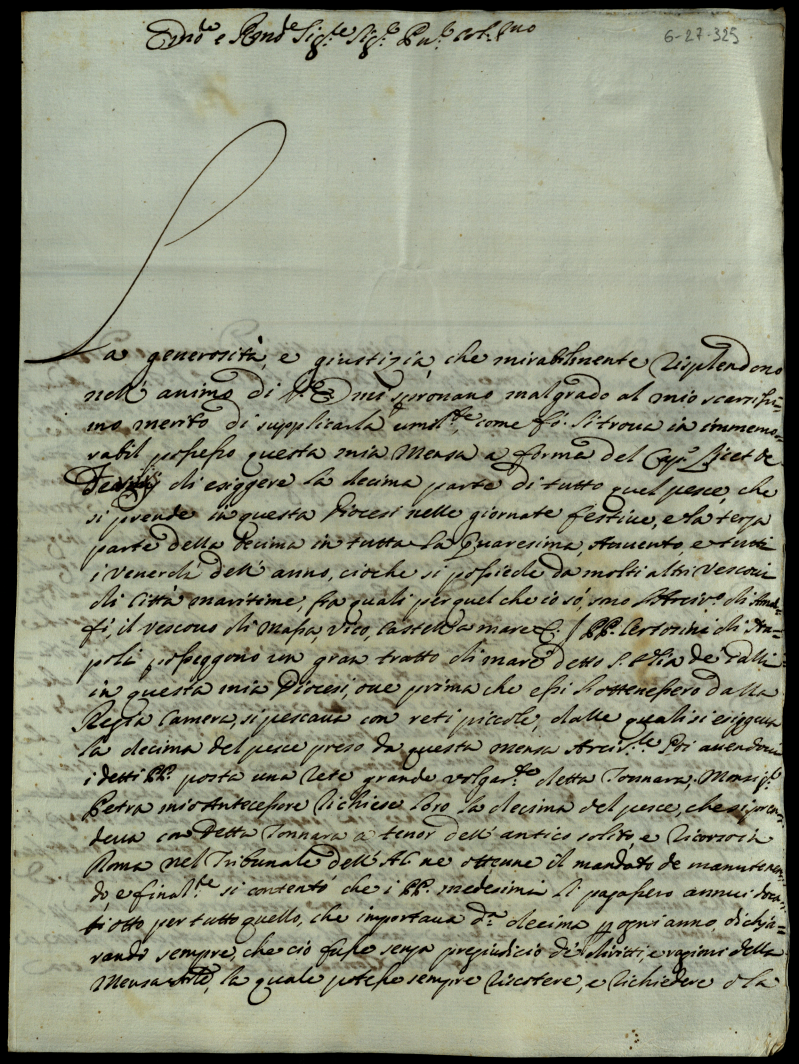 6-27-325
Em̃o e Rm̃o Sig.re Sig.r P.ñ Col.mo
La generosità, e giustizia, che mirabilmente risplendono
nell' animo di V. E. mi spronano malgrado al mio scarsissi=
mo merito di supplicarla umil.te, come fò. Si trova in immemo=
rabil possesso questa mia Mensa a forma del Cap.o Licet de
Decimis di esiggere la decima parte di tutto quel pesce, che
si prende in questa Diocesi nelle giornate festive, e la terza
parte della decima in tutta la Quaresima, Avvento, e tutti
i Venerdì dell' anno, ciòche si possiede da molti altri Vescovi
di Città maritime, fra quali per quel che io sò, sono l'Arciv.o di Amal=
fi, il Vescovo di Massa, Vico, Castell'a mare &. I PP. Certosini di Na=
poli posseggono un gran tratto di mare detto S. Elia de Galli
in questa mia Diocesi, ove prima che essi l'ottenessero dalla
Regia Camera, si pescava con reti piccole, dalle quali si esiggeva
la decima del pesce preso da questa mensa Arciv.le. Poi avendovi
i detti PP. posta una rete grande volgar.te detta Tonnara; Monsig.r
Petra mio Antecessore richiese loro la decima del pesce, che si pren=
deva con detta Tonnara a tenor dell' antico solito, e ricorso in
Roma nel Tribunale dell' AC ne ottenne il mandato de manutenen=
do, e final.te si contentò che i PP. medesimi li pagassero annui docati
otto per tutto quello, che importava d.a decima per ogni anno, dichia=
rando sempre, che ciò fusse senza pregiudicio de' diritti, e ragioni della
Mensa, la quale potesse sempre riscotere, e richiedere o la